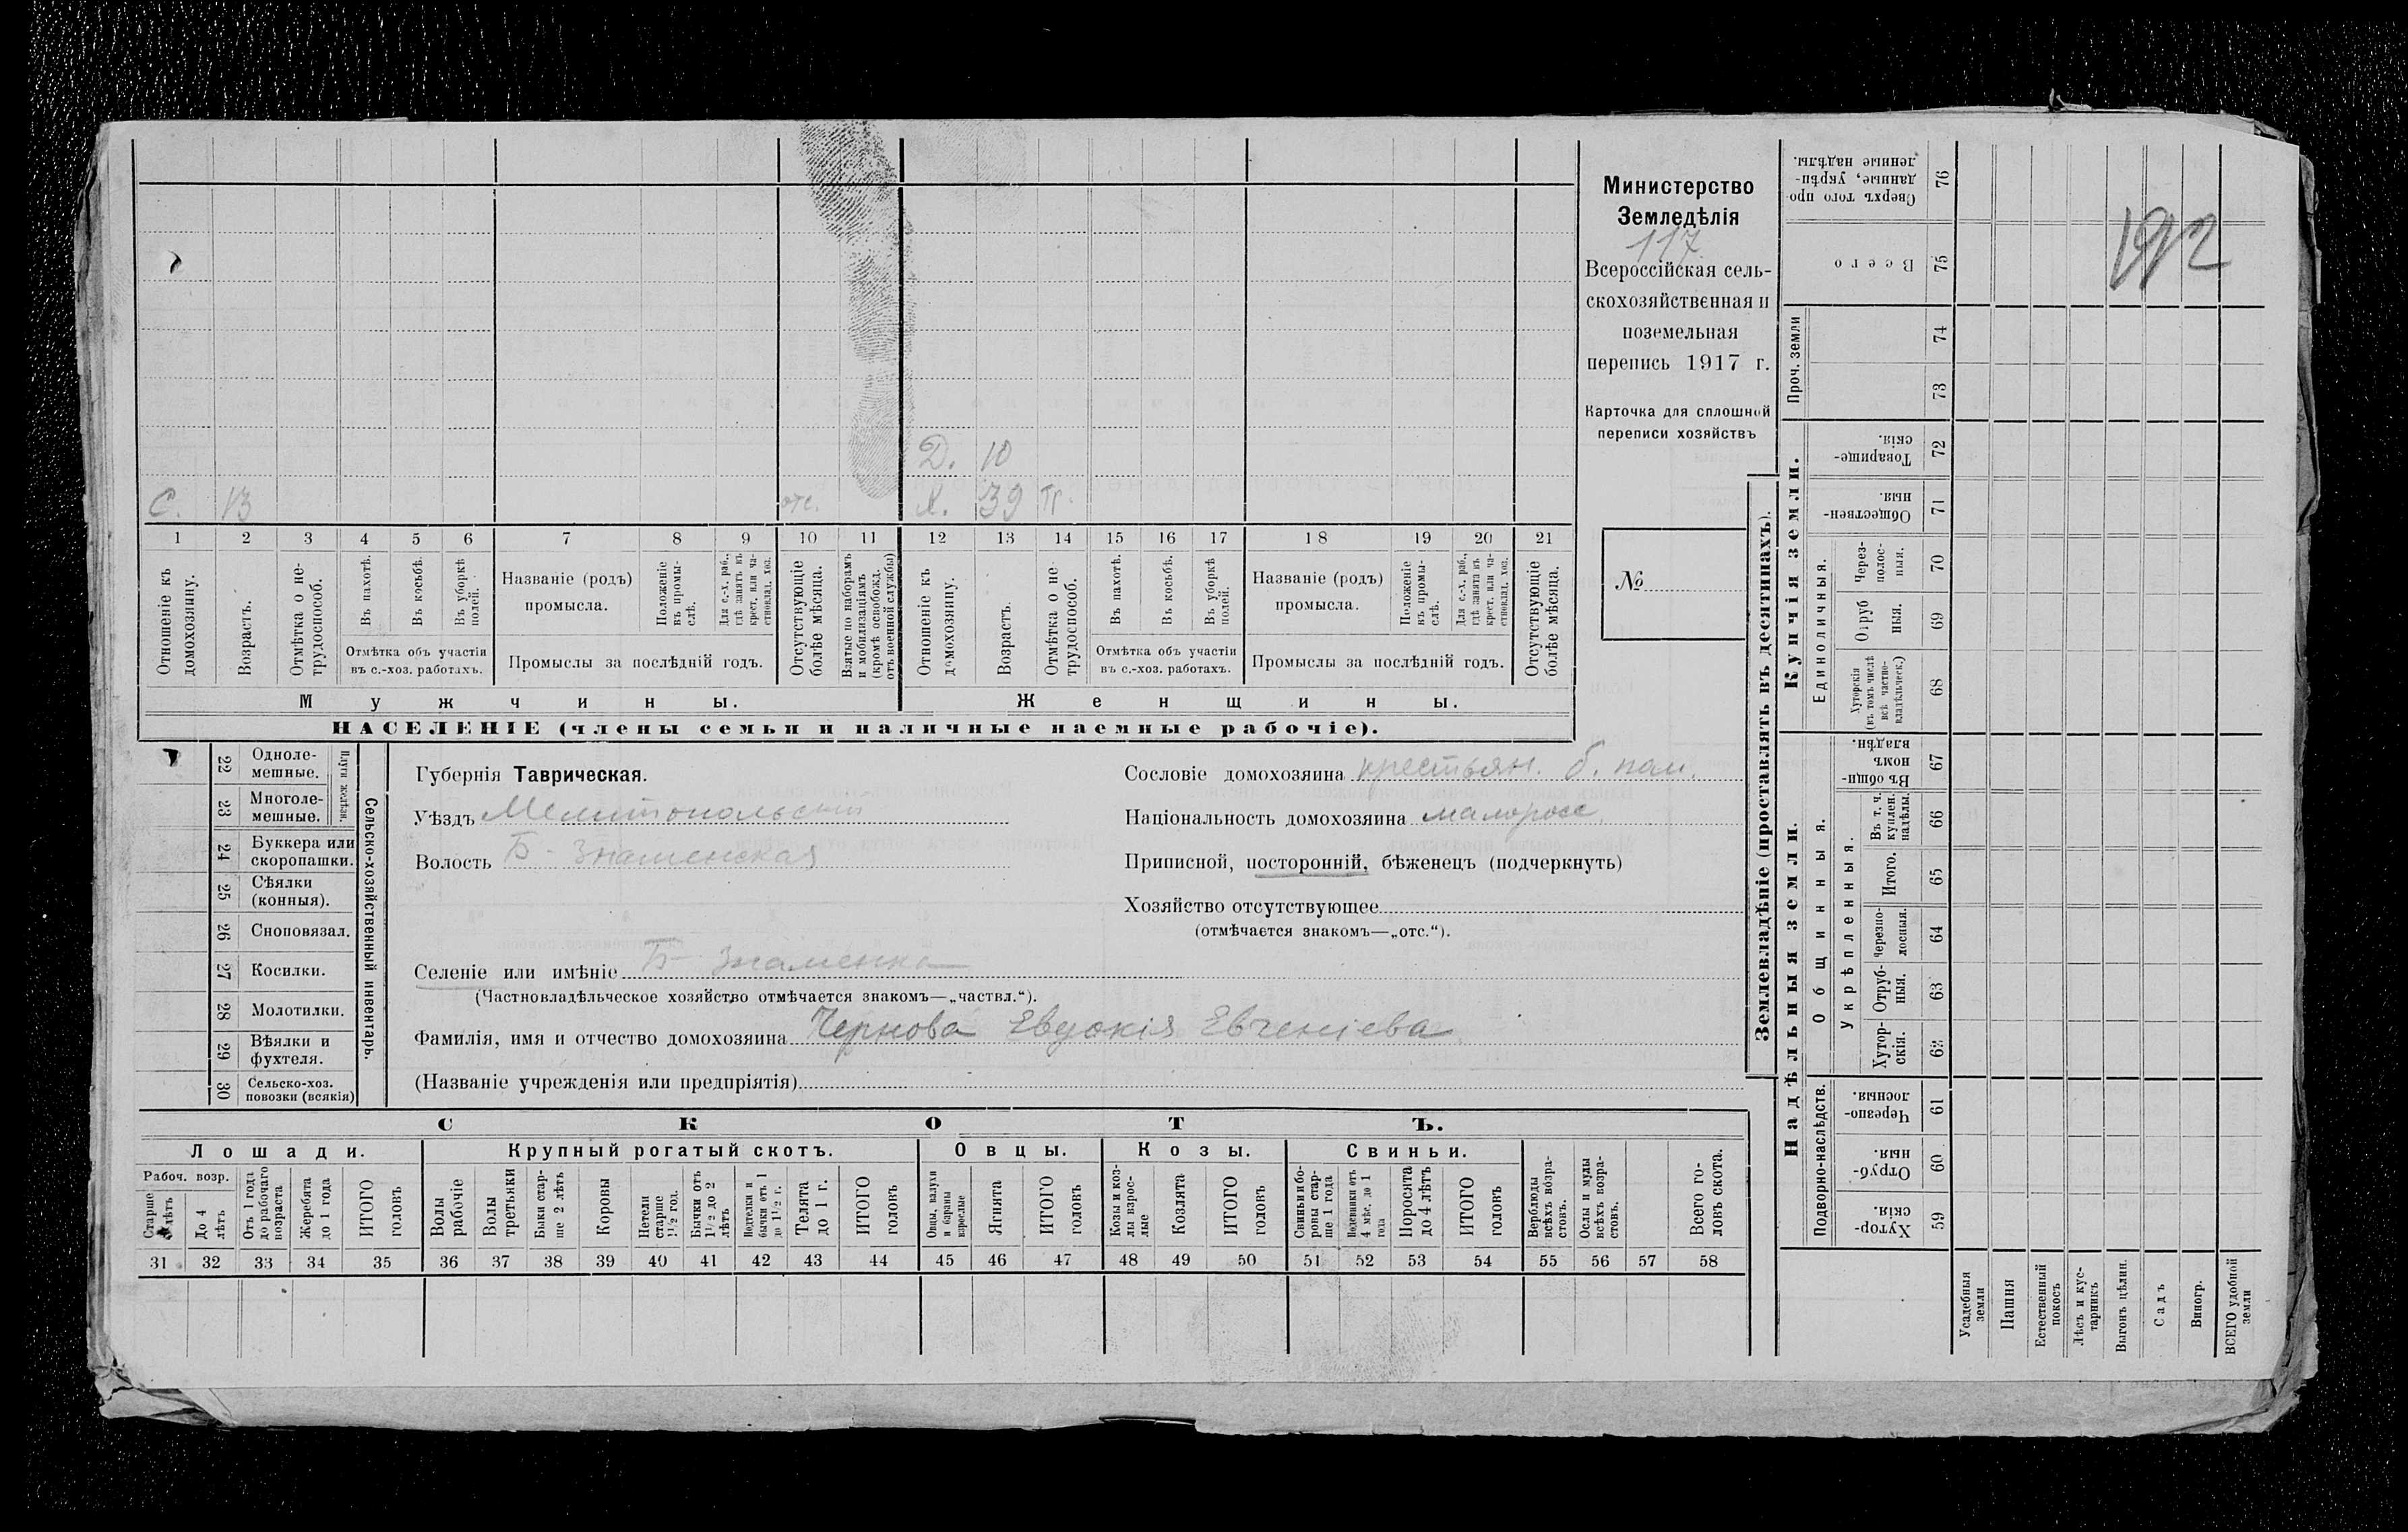 Министерство
Земледѣлія
117
Всероссійская сель-
скохозяйственная и
поземельная
перепись 1917 г.
Карточка для сплошной
переписи хозяйствъ
№
192
Д. 10
С. 13 отс. Х. 39 тг.
1 2 3 4 5 6 7 8 9 10 11 12 13 14 15 16 17 18 19 20 21
Отношеніе къ домохозяину.
Возрастъ.
Отмѣтка о не-трудоспособ.
Въ пахотѣ.
Въ косьбѣ.
Въ уборкѣ полей.
Отмѣтка объ участіи
въ с.-хоз. работахъ.
Названіе (родъ)
промысла.
Положеніе въ промы-слѣ.
Для с.-х. раб., гдѣ занятъ въ крест. или ча-стновлад. хоз.
Промыслы за послѣдній годъ.
Отсутствующіе болѣе мѣсяца.
Взятые по наборамъ и мобилизаціямъ (кромѣ освобожд. отъ военной службы)
Отношеніе къ домохозяину.
Возрастъ.
Отмѣтка о не-трудоспособ.
Въ пахотѣ.
Въ косьбѣ.
Въ уборкѣ полей.
Отмѣтка объ участіи
въ с.-хоз. работахъ.
Названіе (родъ)
промысла.
Положеніе въ промы-слѣ.
Для с.-х. раб., гдѣ занята въ крест. или ча-стновлад. хоз.
Промыслы за послѣдній годъ.
Отсутствующіе болѣе мѣсяца.
Мужчины. Женщины.
НАСЕЛЕНІЕ (члены семьи и наличные наемные рабочіе).
22 Одноле-мешные.
23 Многоле-мешные.
Плуги желѣзн.
24 Буккера или скоропашки.
25 Сѣялки (конныя).
26 Сноповязал.
27 Косилки.
28 Молотилки.
29 Вѣялки и фухтеля.
30 Сельско-хоз. повозки (всякія)
Сельско-хозяйственный инвентарь.
Губернія Таврическая.
Уѣздъ Мелитопольскій
Волость Б-Знаменская
Сословіе домохозяина крестьян. б. пом.
Національность домохозяина малоросс.
Приписной, посторонній, бѣженецъ (подчеркнуть)
Хозяйство отсутствующее
(отмѣчается знакомъ—„отс.“).
Селеніе или имѣніе Б-Знаменка
(Частновладѣльческое хозяйство отмѣчается знакомъ—„частвл.“).
Фамилія, имя и отчество домохозяина Чернова Евдокія Евгеніева
(Названіе учрежденія или предпріятія)
СКОТЪ.
Лошади. Крупный рогатый скотъ. Овцы. Козы. Свиньи.
Рабоч. возр.
Старше лѣтъ
До 4 лѣтъ
Отъ 1 года до рабочаго возраста
Жеребята до 1 года
ИТОГО головъ
Волы рабочіе
Волы третьяки
Быки стар-ше 2 лѣтъ
Коровы
Нетели старше 1½ год.
Бычки отъ 1½ до 2 лѣтъ
Подтелки и бычки отъ 1 до 1½ г.
Телята до 1 г.
ИТОГО головъ
Овцы, валухи и бараны взрослые
Ягнята
ИТОГО головъ
Козы и коз-лы взрос-лые
Козлята
ИТОГО головъ
Свиньи и бо-ровы стар-ше 1 года
Подсвинки отъ 4 мѣс. до 1 года
Поросята до 4 лѣтъ
ИТОГО головъ
Верблюды всѣхъ возра-стовъ.
Ослы и мулы всѣхъ возра-стовъ.
Всего го-ловъ скота.
31 32 33 34 35 36 37 38 39 40 41 42 43 44 45 46 47 48 49 50 51 52 53 54 55 56 57 58
Землевладѣніе (проставлять въ десятинахъ).
Купчія земли.
Надѣльныя земли.
Сверхъ того про-данные, укрѣп-ленные надѣлы. 76
Всего 75
Проч. земли
74
73
Товарище-скія. 72
Обществен-ныя. 71
Единоличныя.
Через-полос-ныя. 70
Отруб ныя. 69
Хуторскія (въ томъ числѣ всѣ частно-владѣльческ.) 68
Въ общи-номъ владѣн. 67
Общинныя.
Укрѣпленныя.
Въ т. ч. куплен. надѣлы. 66
Итого. 65
Черезпо-лосныя. 64
Отруб-ныя. 63
Хутор-скія. 62
Подворно-наслѣдств.
Черезпо-лосныя. 61
Отруб-ныя. 60
Хутор-скія. 59
Усадебныя земли
Пашня
Естественный покосъ
Лѣсъ и кус-тарникъ
Выгонъ цѣлин.
Садъ
Виногр.
ВСЕГО удобной земли